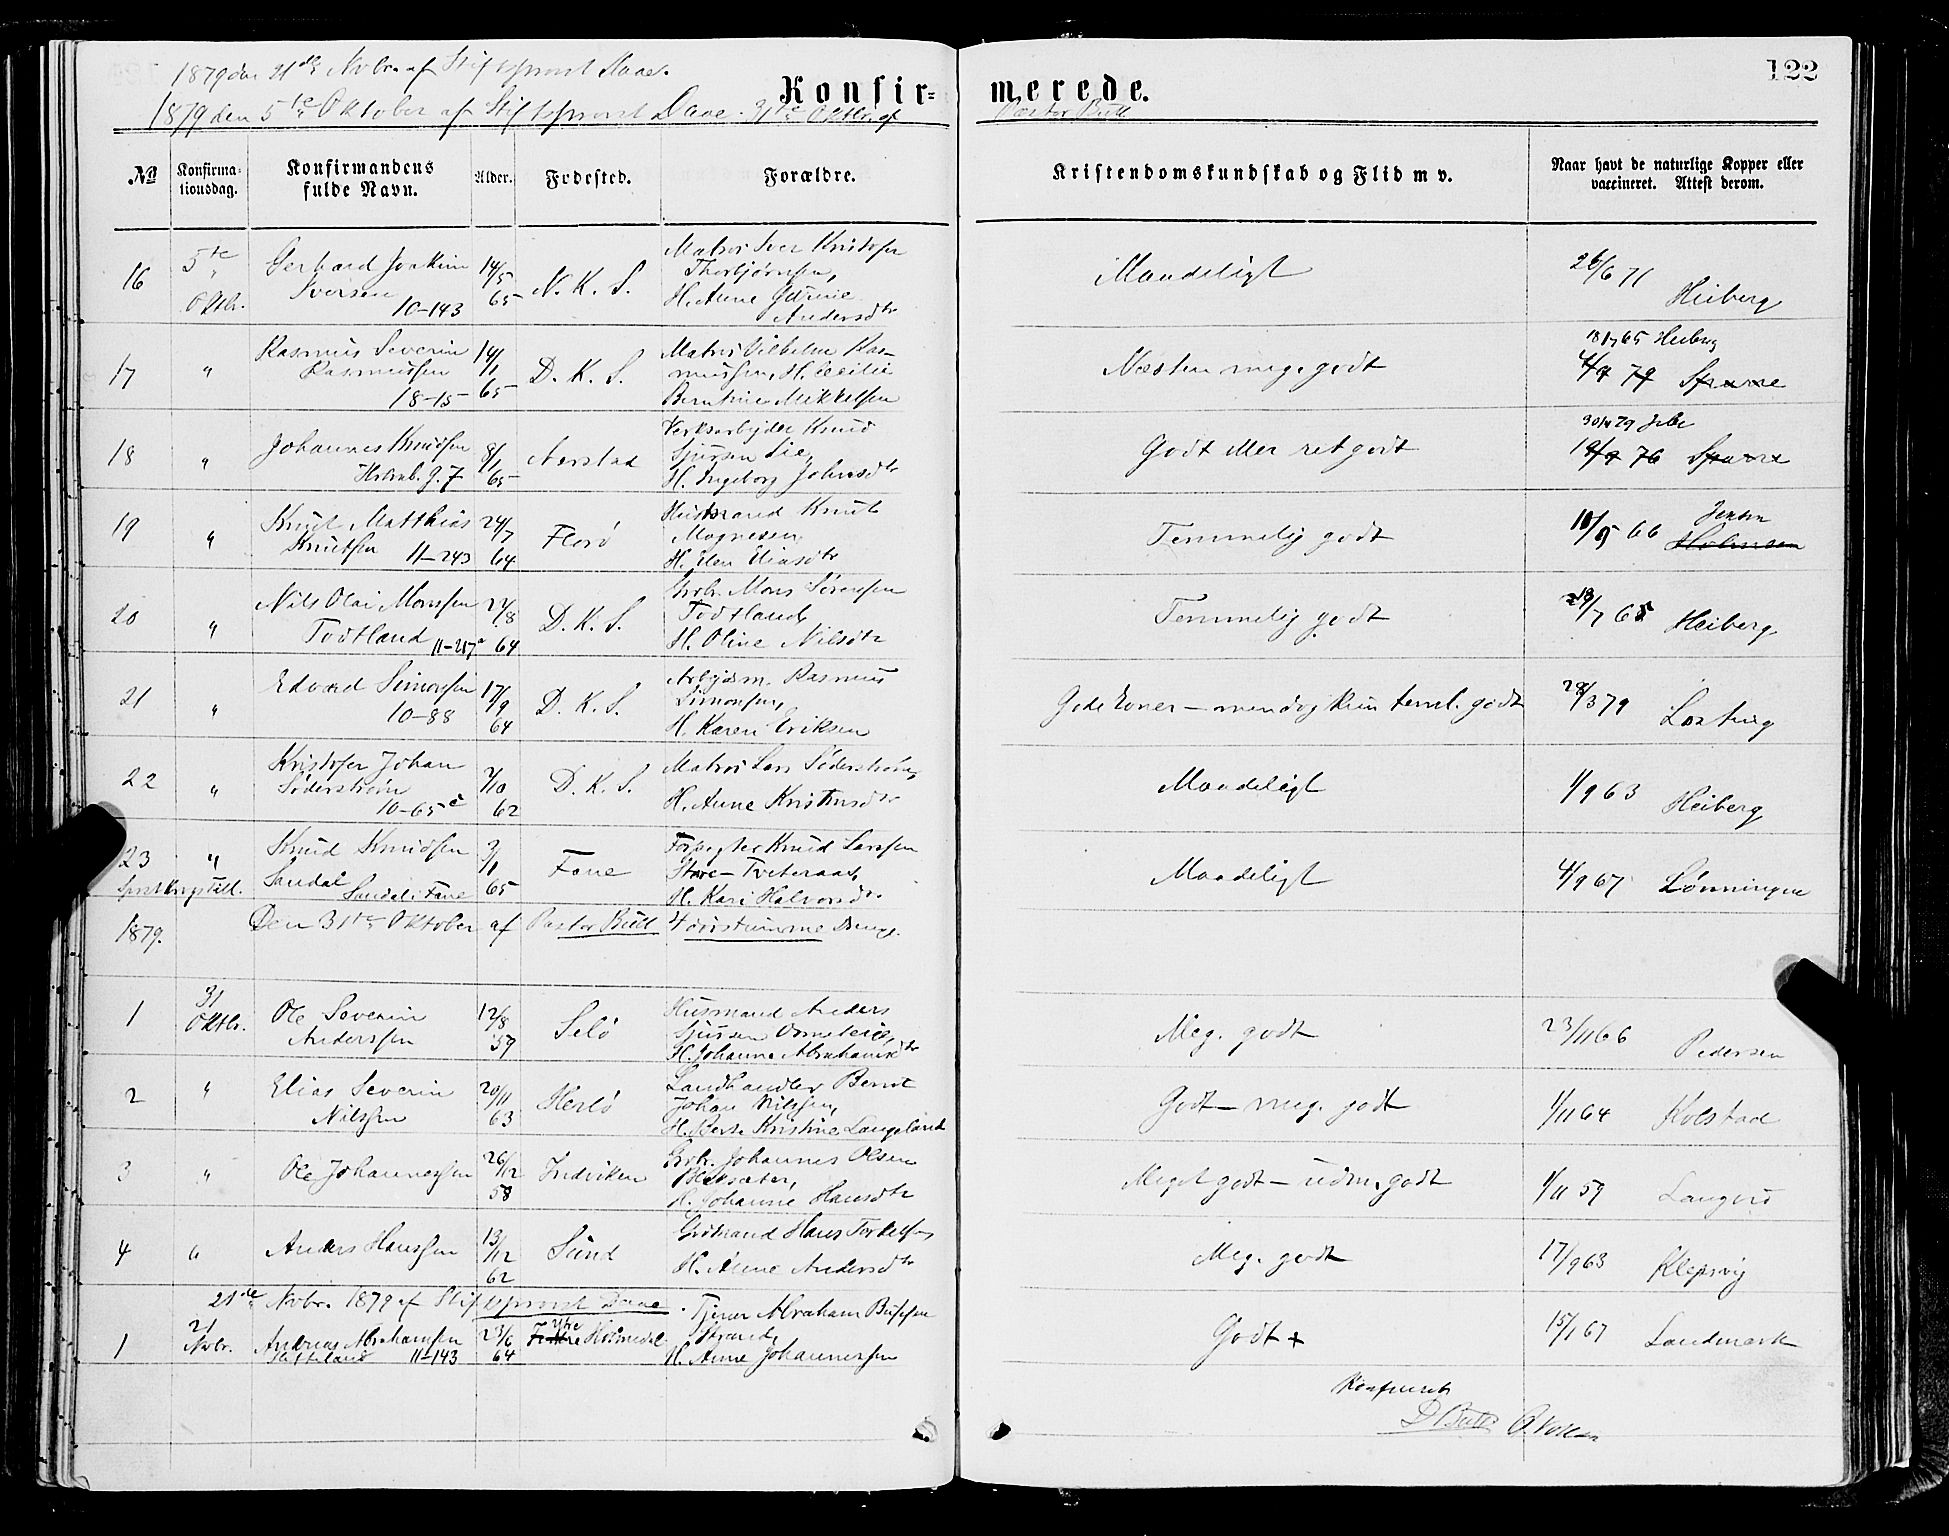 122
1879 den 21de Nvbr. af Stiftsprovst Daae.
Konfir= merede.
1879 den 5te Oktober af Stiftsprovst Daae. 31te Oktbr. af Pastor Bull
№ Konfirma-tionsdag. Konfirmandens fulde Navn. Alder. Fødested. Forældre. Kristendomskundskab og Flid m v. Naar havt de naturlige Kopper eller vaccineret. Attest derom.
16 5te Oktbr. Gerhard Joakim Iversen 10-143 14/5 65 N. K. S. Matros Iver Kristofer Thorbjørnsen, H. Anne Andersdtr Maadeligt 26/6 71 Heiberg
17 " Rasmus Severin Rasmussen 18-15 14/1 65 D. K. S. Matros Vilhelm Rasmussen, H. Cecilie Berntine Mikkelsen Næsten meg. godt 18/7 65 Heiberg 4/9 79 Sparre
18 " Johannes Knudsen 8/1 65 Aarstad Verksarbejder Knud Sjursen Lie, H. Ingeborg Johnsdtr Godt eller ret godt 12/9 76 Sparre
19 " Knut Matthias Knutsen 11-243 24/7 64 Florø Husmand Knut Magnesen H. Elen Eliasdtr Temmelig godt 10/9 66 Jensen Holmsen
20 " Nils Olai Monssen Todtland 11-217a 27/8 64 D. K. S. Grbr. Mons Sørensen Todtland, H. Oline Nilsdtr Temmelig godt 18/7 65 Heiberg
21 " Edvard Simonsen 10-88 17/9 64 D. K. S. Arbejdsm. Rasmus Simonsen, H. Karen Eriksen Gode Evner - men dog kun teml. godt 28/3 79
22 " Kristofer Johan Söderström 10-65c 2/10 62 D. K. S. Matros Lars Söderström, H. Anne Kristensdtr Maadeligt 1/9 63 Heiberg
23 " Knud Knudsen Sandal Sandal i Fane 3/1 65 Fane Forpagter Knud Larssen Store-Tveteraas, H. Kari Halvorsdtr Maadeligt 4/9 67 Lønningen
1879. Den 31te Oktober af Pastor Bull 4 døvstumme Drenge.
1 31 Oktbr. Ole Severin Anderssen 12/8 59 Selø Husmand Anders Sjursen H. Johanne Abrahamsdtr Meg. godt 23/11 66 Pedersen
2 " Elias Severin Nilssen 20/11 63 Herlø Landhandler Bernt Johan Nilssen, H. Berte Kristine Langeland Godt - meg. godt 1/11 64 Kolstad
3 " Ole Johannessen 26/12 58 Indviken Grbr. Johannes Olsen H. Johanne Hansdtr Meget godt - udm. godt 1/11 59
4 " Anders Hanssen 13/12 62 Sund Grdmand Hans Torkelsen H. Anne Andersdtr Meg. godt 17/9 63 Klepsvig
21de Nvbr. 1879 af Stiftsprovst Daae.
1 21 Nvbr. Andreas Abrahamsen 11-143 23/6 64 Ytre Holmedal Tjener Abraham Strand, H. Anne Johannessen Godt + 15/1 67 Landmark
Konfereret
D Bull